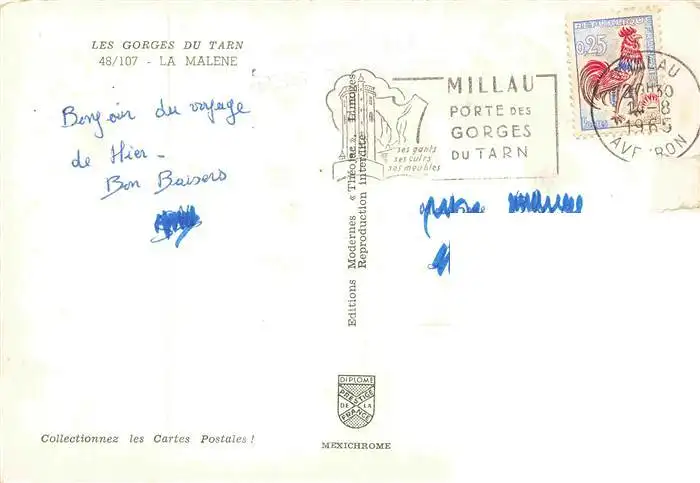 LES GORGES DU TARN
48/107 - LA MALENE
Bonjour du voyage
de Hier -
Bon Baisers
Editions Modernes « Théojac », Limoges
Reproduction interdite
MILLAU
PORTE DES
GORGES
DU TARN
ses gants
ses cuirs
ses meubles
0,25
MILLAU
1965
AVEYRON
DIPLOME
PRESTIGE
DE LA
FRANCE
MEXICHROME
Collectionnez les Cartes Postales !